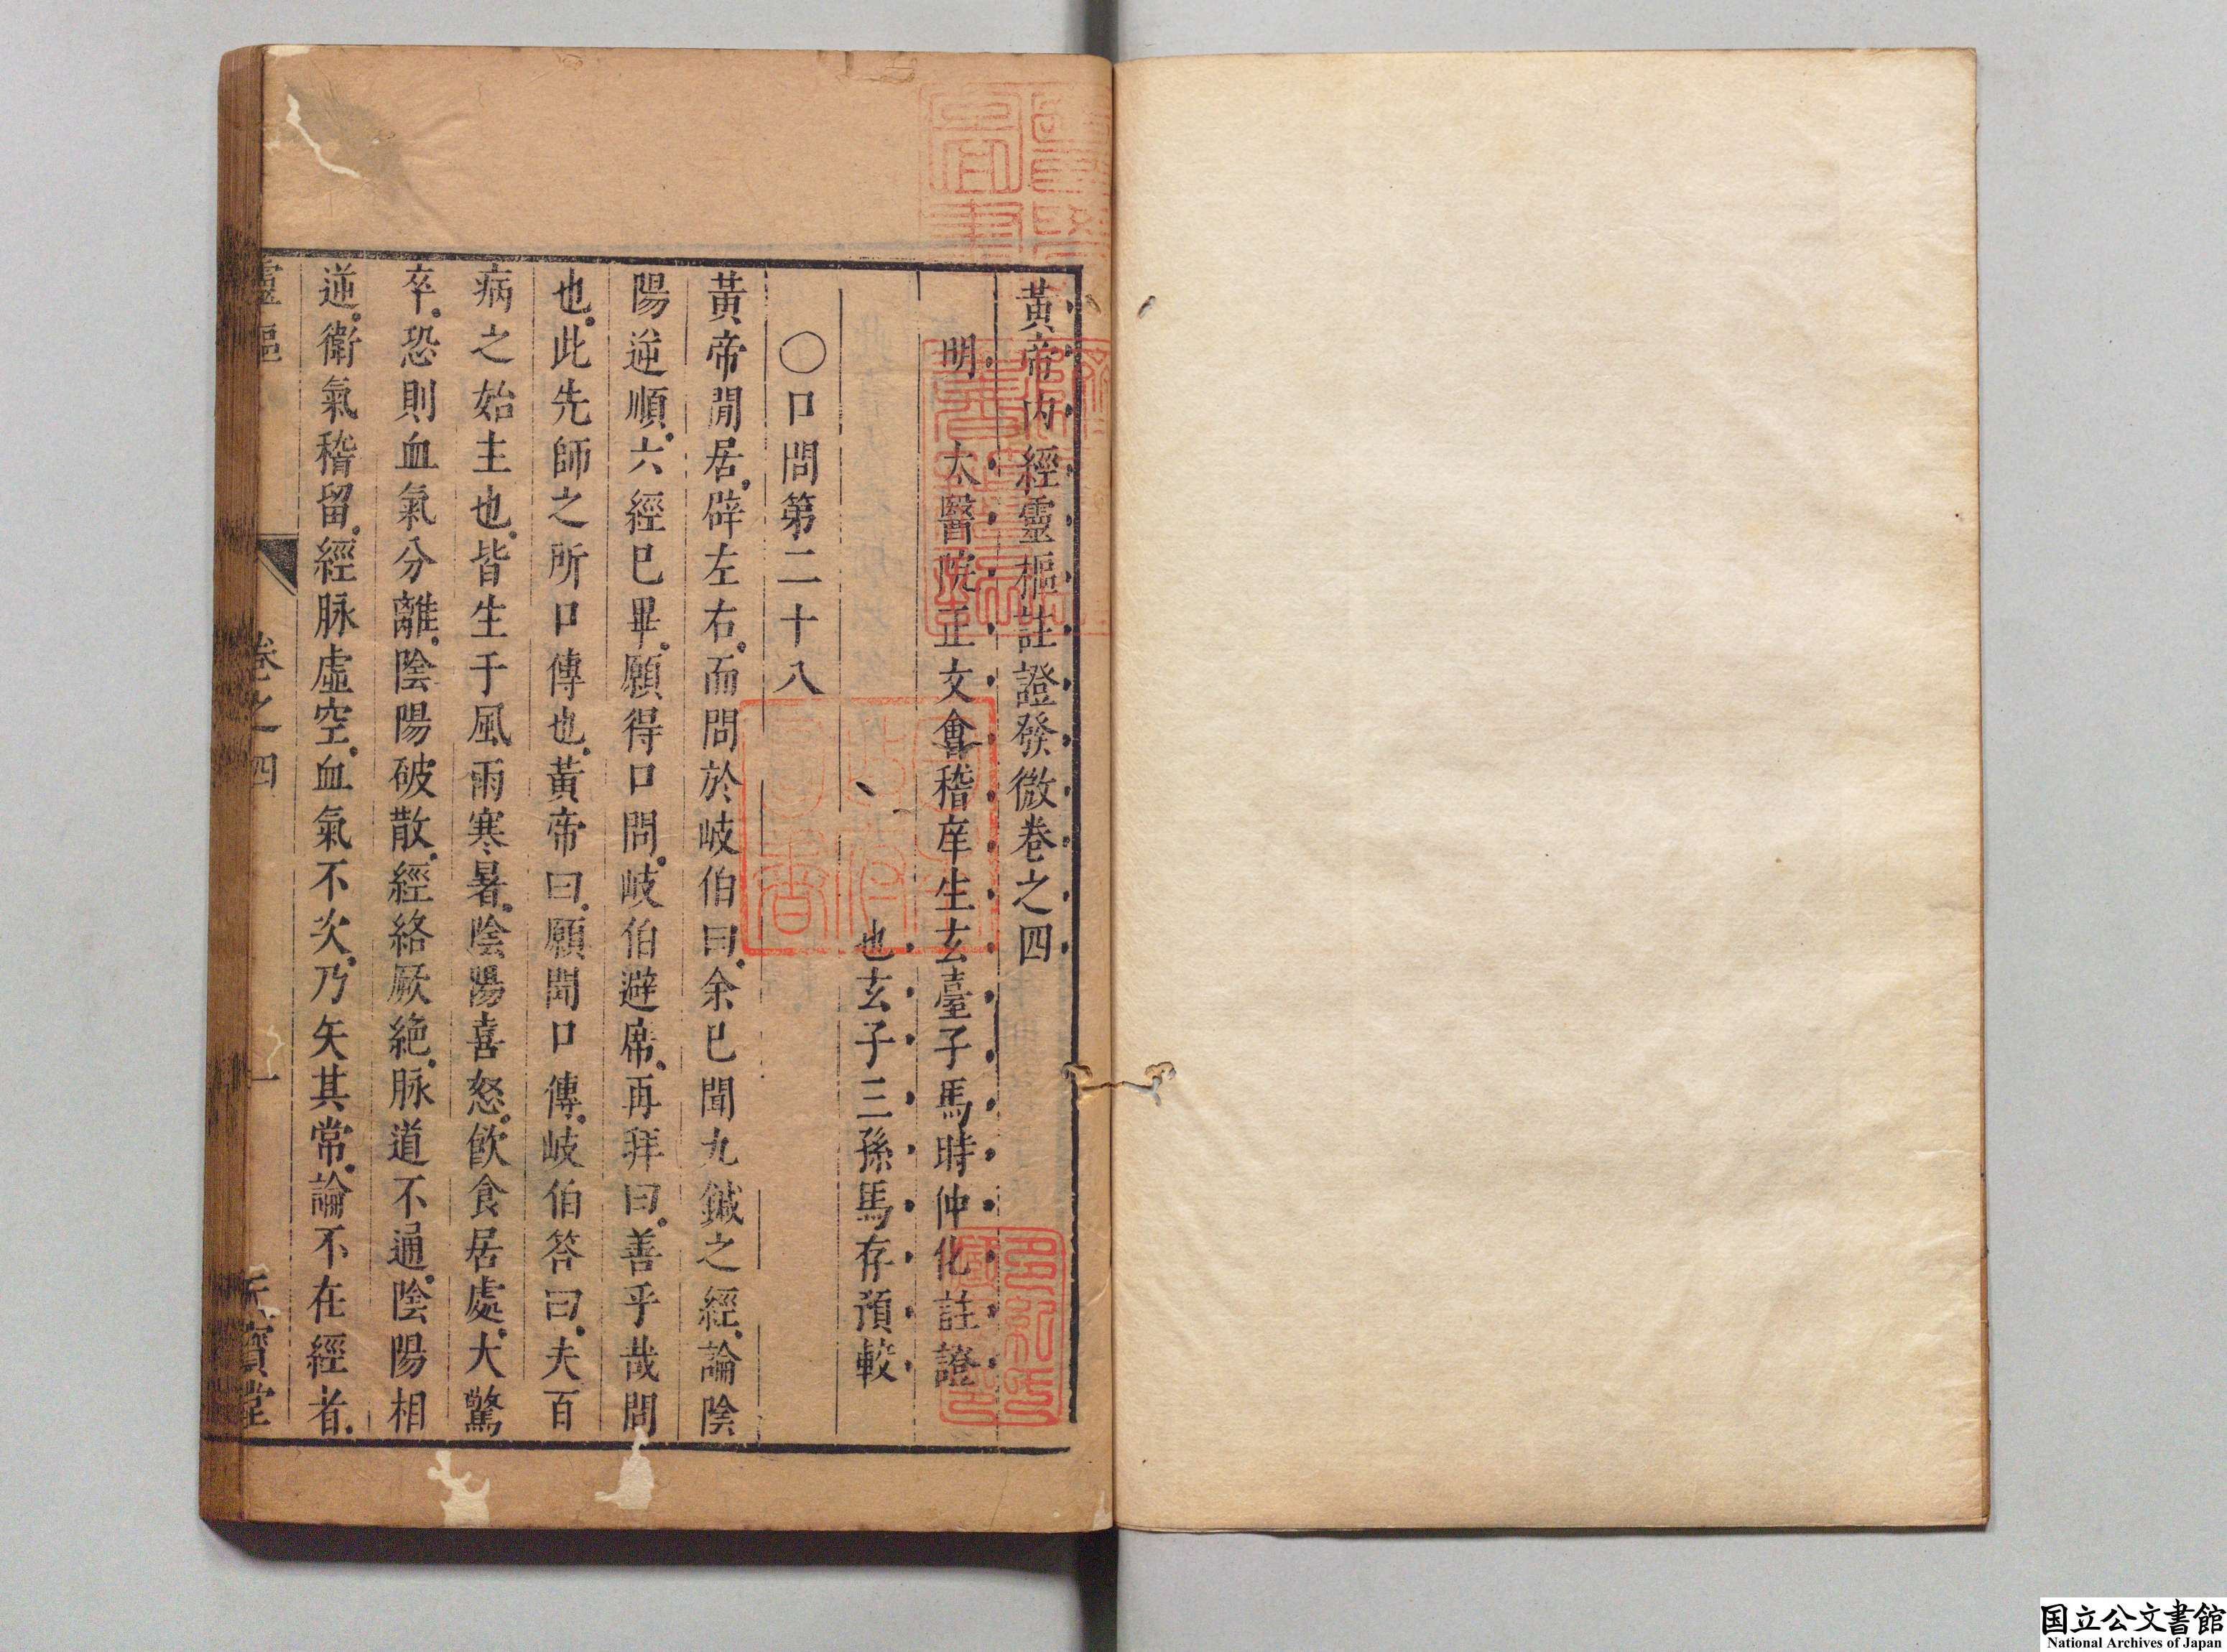 黃帝內經靈樞註證發微卷之四
明 太醫院正文會稽庠生玄臺子馬時仲化註證
也玄子三孫馬存預較
○口問第二十八
黃帝閒居辟左右而問於岐伯曰余已聞九鍼之經論陰
陽逆順六經已畢願得口問岐伯避席再拜曰善乎哉問
也此先師之所口傳也黃帝曰願聞口傳岐伯答曰夫百
病之始主也皆生于風雨寒暑陰陽喜怒飲食居處大驚
卒恐則血氣分離陰陽破散經絡厥絶脉道不通陰陽相
逆衛氣稽留經脉虛空血氣不次乃失其常論不在經者
靈樞 卷之四 一 寶堂
国立公文書館
National Archives of Japan